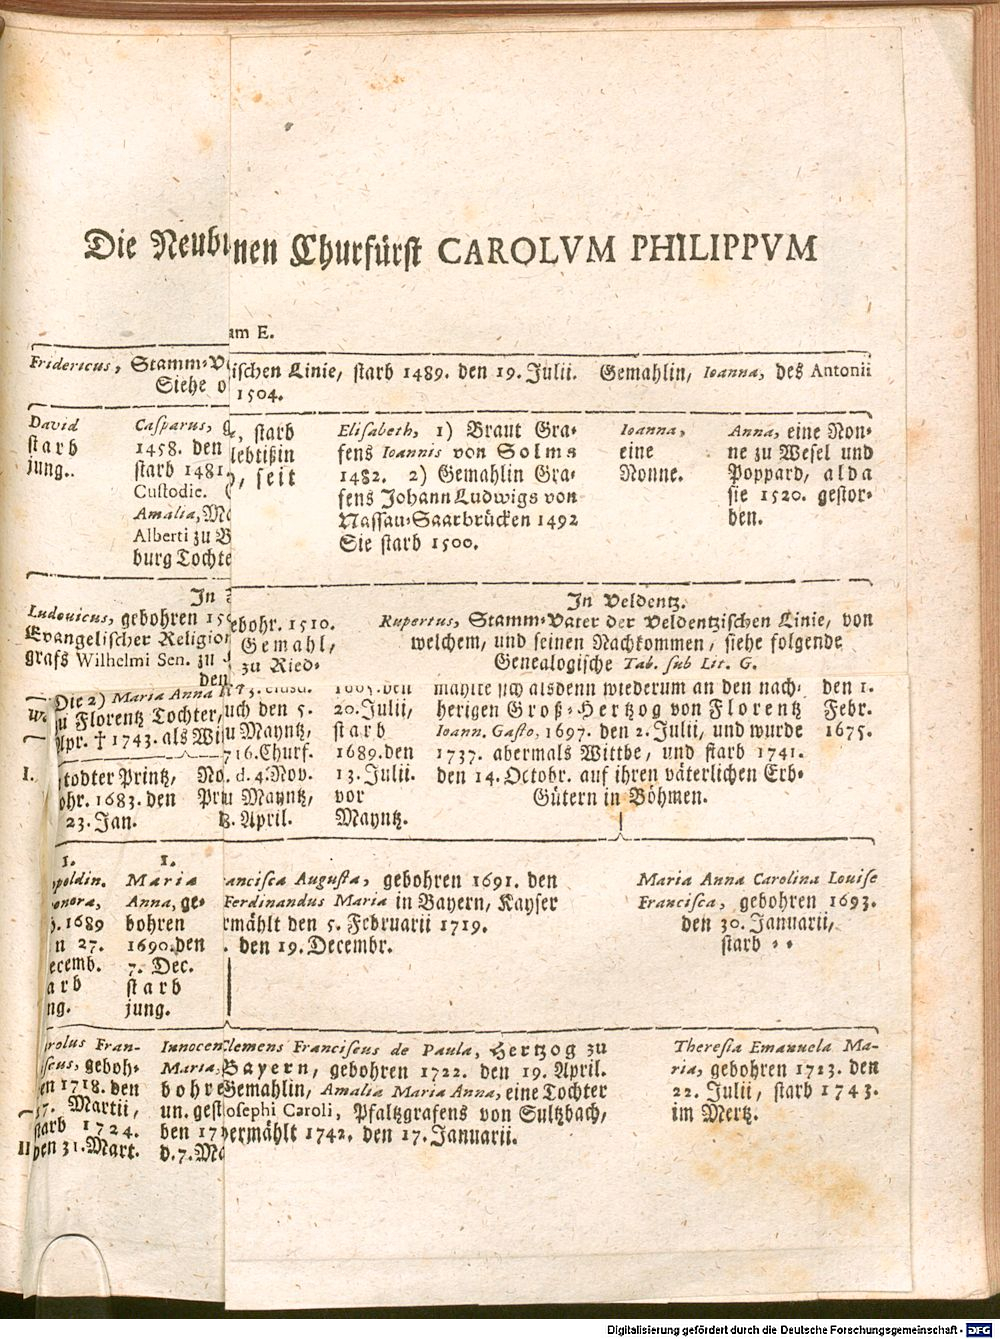 Die Neubu
nen Churfürst CAROLVM PHILIPPVM
am E.
Fridericus, Stamm-V
Siehe o
ischen Linie, starb 1489. den 19. Julii. Gemahlin, Ioanna, des Antonii
1504.
David
starb
jung..
Casparus, g
1458. den
starb 1481.
Custodie.
Amalia, Ma
Alberti zu B
burg Tochte
e, starb
lebtißin
o, seit
Elisabeth, 1) Braut Gra-
fens Ioannis von Solms
1482. 2) Gemahlin Gra-
fens Johann Ludwigs von
Nassau-Saarbrücken 1492
Sie starb 1500.
Ioanna,
eine
Nonne.
Anna, eine Non-
ne zu Wesel und
Poppard, alda
sie 1520. gestor-
ben.
In
Ludovicus, gebohren 150
Evangelischer Religion
grafs Wilhelmi Sen. zu
den
ebohr. 1510.
Gemahl,
zu Ried-
In Veldentz.
Rupertus, Stamm-Vater der Veldentzischen Linie, von
welchem, und seinen Nachkommen, siehe folgende
Genealogische Tab. sub Lit. G.
Die 2) Maria Anna
zu Florentz Tochter,
Apr. † 1743. als Wi
uch den 5.
u Mayntz,
716. Churf.
d. 4. Nov.
u Mayntz,
3. April.
1685. den
20. Julii,
starb
1689. den
13. Julii.
vor
Mayntz.
mählte sich alsdenn wiederum an den nach-
herigen Groß-Hertzog von Florentz
Ioann. Gasto, 1697. den 2. Julii, und wurde
1737. abermals Wittbe, und starb 1741.
den 14. Octobr. auf ihren väterlichen Erb-
Gütern in Böhmen.
den 1.
Febr.
1675.
I.
todter Printz,
ohr. 1683. den
23. Jan.
No
Pri
1.
poldin.
onora,
b. 1689
n 27.
ecemb.
arb
ng.
1.
Maria
Anna, ge-
bohren
1690. den
7. Dec.
starb
jung.
ancisca Augusta, gebohren 1691. den
Ferdinandus Maria in Bayern, Kayser
rmählt den 5. Februarii 1719.
. den 19. Decembr.
Maria Anna Carolina Louise
Francisca, gebohren 1693.
den 30. Januarii,
starb - -
rolus Fran-
iscus, geboh-
en 1718. den
17. Martii,
starb 1724.
den 31. Mart.
II
Innocen
Maria,
bohre
un. gest
ben 17
d. 7. Ma
Clemens Franciscus de Paula, Hertzog zu
Bayern, gebohren 1722. den 19. April.
Gemahlin, Amalia Maria Anna, eine Tochter
Josephi Caroli, Pfaltzgrafens von Sultzbach,
vermählt 1742. den 17. Januarii.
Theresia Emanuela Ma-
ria, gebohren 1723. den
22. Julii, starb 1743.
im Mertz.
Digitalisierung gefördert durch die Deutsche Forschungsgemeinschaft - DFG